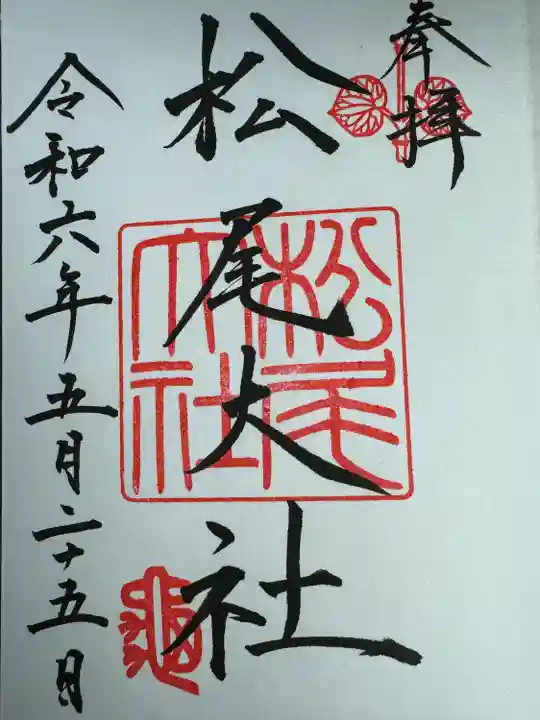 奉拝
松尾大社
松尾大社
令和六年五月二十五日